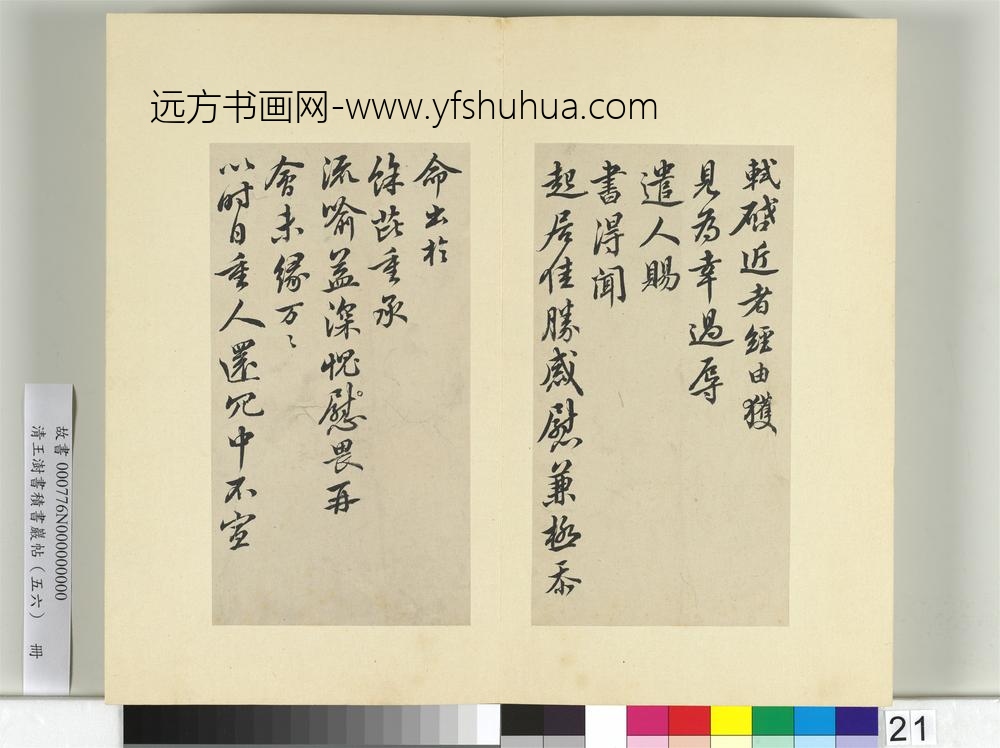 远方书画网-www.yfshuhua.com
軾啓近者經由獲
見為幸過辱
遣人賜
書得聞
起居佳勝感慰兼極忝
命出於
餘芘重承
流喻益深愧慰畏再
會未緣万〻
以时自重人還冗中不宣
故書000776N000000000
清王澍書積書巖帖（五六） 冊
21